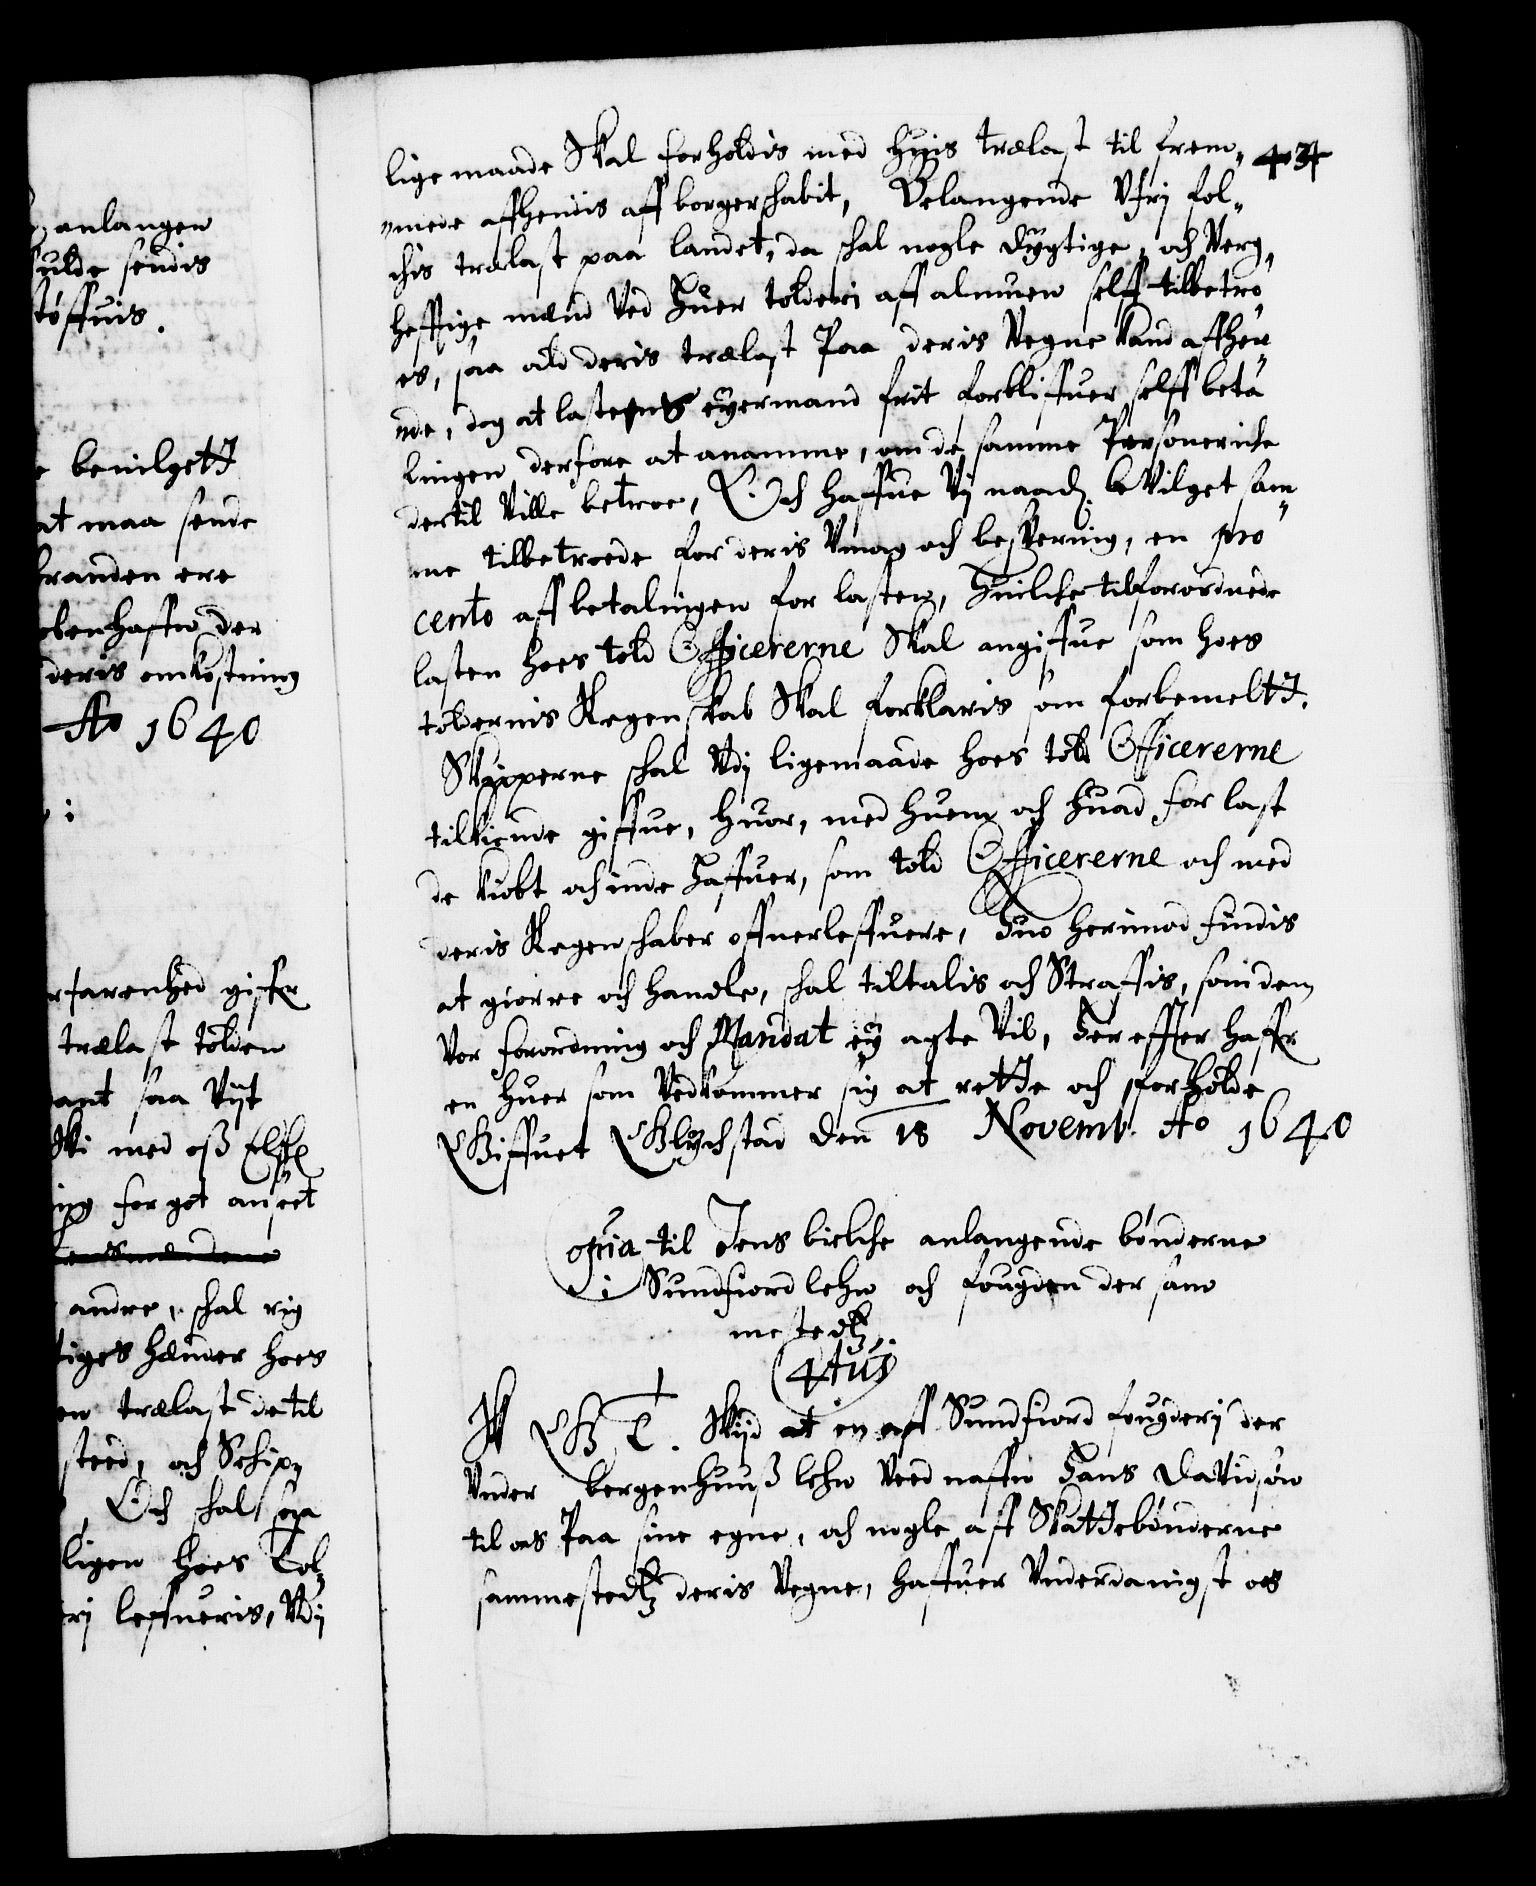 anlangen
ulde sendis
tøffuis.
benilgett
at maa sende
branden ere
benhaffn der
deris omkostning
Ao 1640
farenhed giffr
trælast tolden
ant saa vijt
Ski med oß Elskl
for got anseet
andre, schal rig
tiges hænder hoes
en trælast dertil
steed, och Schip,
Och schal
ligen hoes Tol,
rj leffueris, Vdj
434
lige maade Skal forholdis med huis trælast til frem,,
mede affhendis aff borgerschabit, Belangende Vfrj fol,,
chis trælast paa landet, da schal nogle dygtige, och Verg,,
hefftige mænd ved huer tolderi aff almuen selff tilbetro
es, saa ald deris trælast Paa deris Vegne Kand afhen
nde, dog at lastens eyermand frit forbliffuer selff beta
lingen derfore at anamme, om de samme Personer iche
dertil Ville betroe, Och haffue Vj naad. beVilget sam
me tilbetroede for deris Vmag och beskering, en pro
cento aff betalingen for lasten, Huilche tilforordnede
lasten hoes told Officererne Skal angiffue som hoes
toldernis Regenskab Skal forklaris som forbemeltt.
Skipperne schal Vdj ligemaade hoes told Officererne
tilkiende giffue, huor, med huem och huad for last
de kiøbt och inde haffuer, som told Officererne och med
deris Regenschaber offuerleffuere, Huo herimod findis
at giørre och handle, schal tiltalis och Straffis, som den
Vor forordning och Mandat ej agte Vil, Der effter haffr
en huer som Vedkommer sig at rette och forholde
Giffuet Glychstad den 18 Novemb. Ao 1640
Copia til Jens bielche anlangende bønderne
i Sundfiord lehn och fougden der sam
mestedtz.
C4tus
W G T. Vijd at en aff Sundfiord fougderj der
Vnder bergenhuuß lehn Veed naffn Hans Dauidsøn
til os Paa sine egne, och nogle aff Skattebønderne
sammestedtz deris Vegne, haffuer Vnderdanigst os